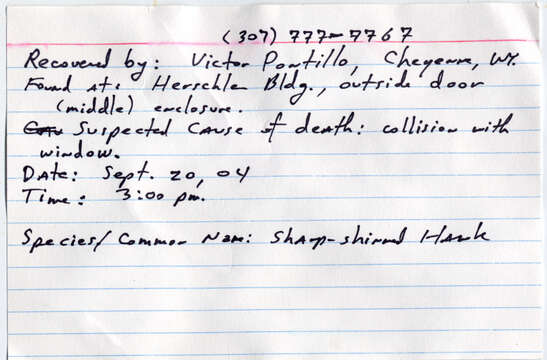 (307) 777-7767
Recovered by: Victor Portillo, Cheyenne, WY.
Found at: Herschler Bldg., outside door
(middle) enclosure.
Suspected Cause of death: collision with
window.
Date: Sept. 20, 04
Time: 3:00 pm.
Species/Common Name: Sharp-shinned Hawk